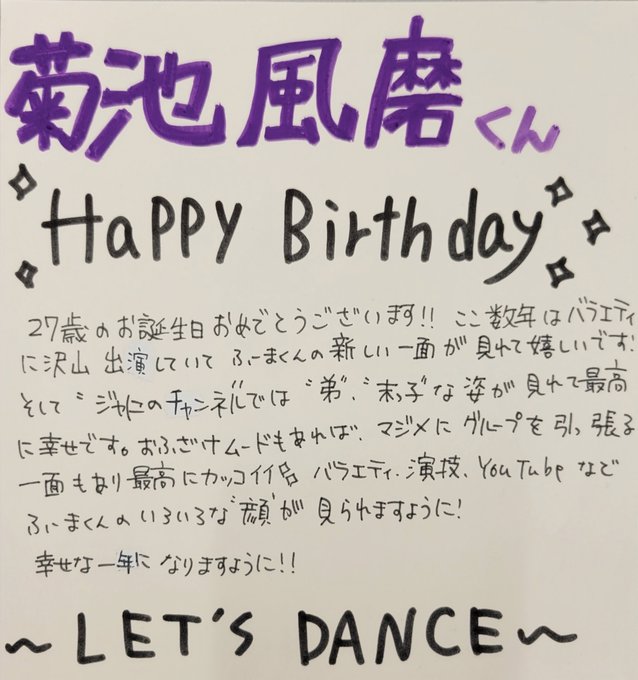 菊池風磨くん
Happy Birthday
27歳のお誕生日おめでとうございます!! ここ数年はバラエティ
に沢山出演していて ふーまくんの新しい一面が見れて嬉しいです!
そして"ジャにのチャンネル"では"弟"、"末っ子"な姿が見れて最高
に幸せです。おふざけムードもあれば、マジメにグループを引っ張る
一面もあり最高にカッコイイ バラエティ、演技、YouTubeなど
ふーまくんのいろいろな"顔"が見られますように!
幸せな一年になりますように!!
~LET'S DANCE~